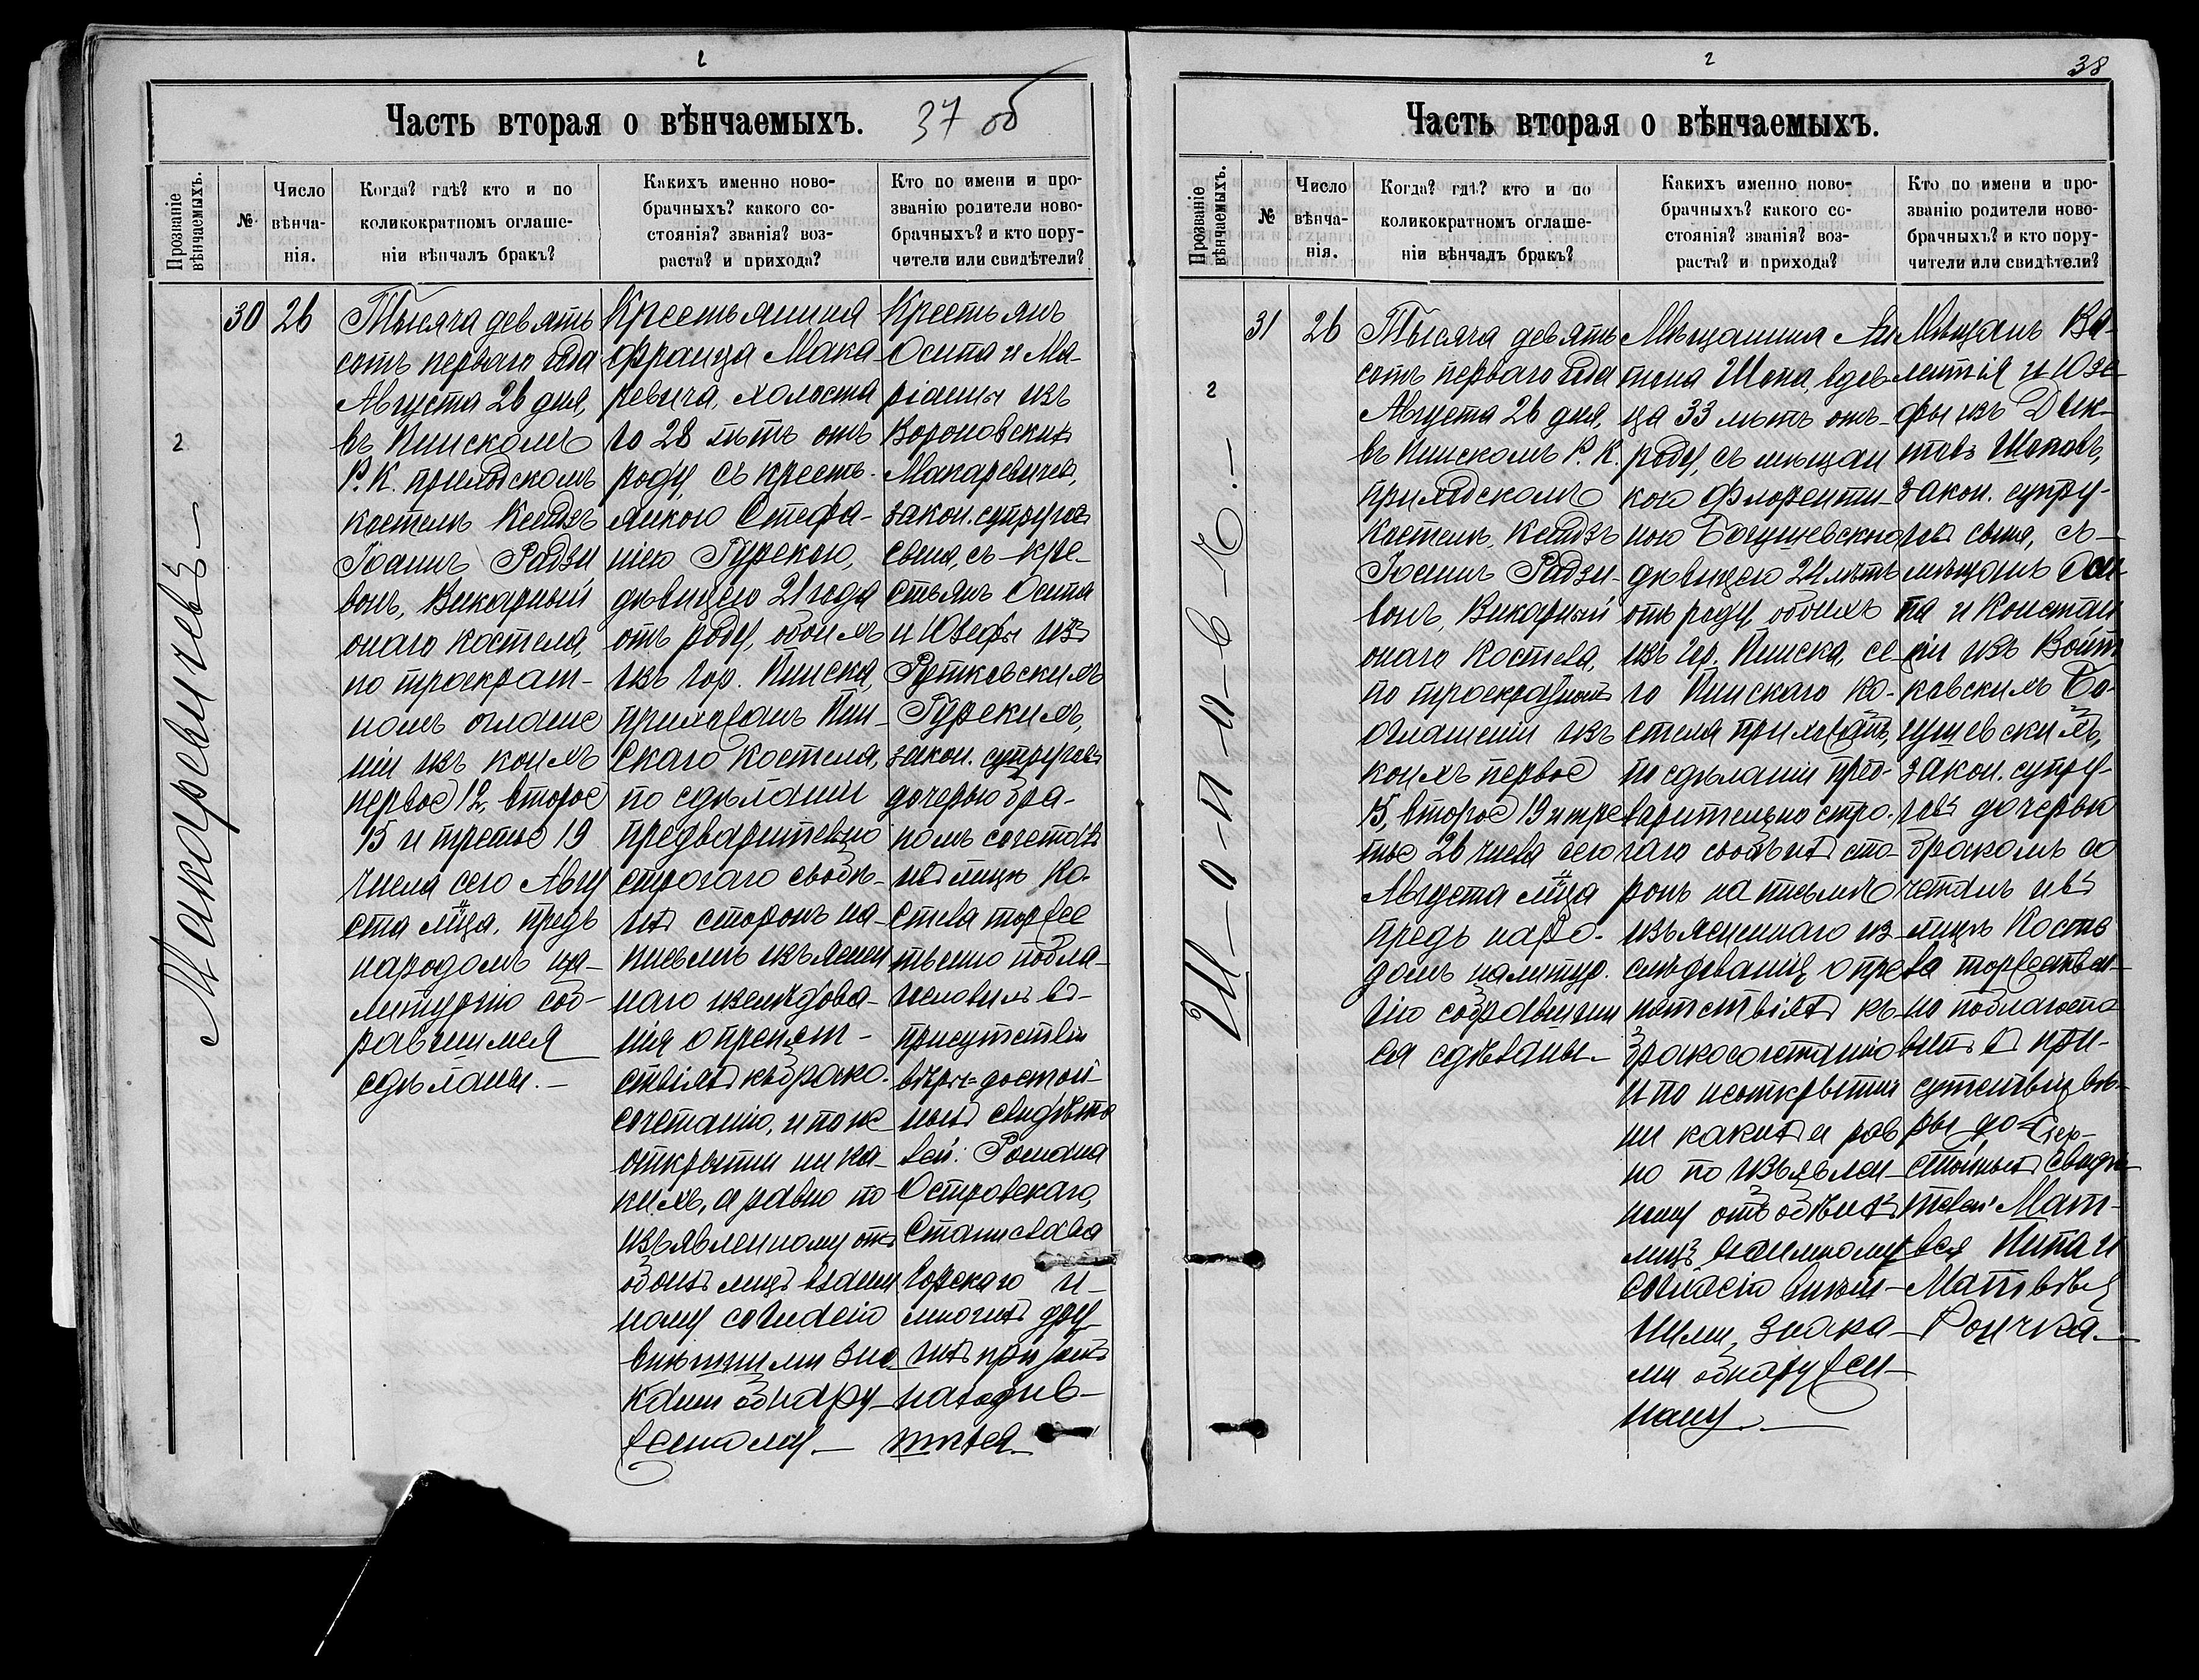 2
Часть вторая о вѣнчаемыхъ.
37 об
Прозваніе
вѣнчаемыхъ.
№
Число
вѣнча-
нія.
Когда? гдѣ? кто и по
коликократномъ оглаше-
ніи вѣнчалъ бракъ?
Какихъ именно ново-
брачныхъ? какого со-
стоянія? званія? воз-
раста? и прихода?
Кто по имени и про-
званію родители ново-
брачныхъ? и кто пору-
чители или свидѣтели?
2
Макаревичев
30
26
Тысяча девять
сотъ перваго года
Августа 26 дня,
въ Пинскомъ
Р. К. приходскомъ
костелѣ Ксендзъ
Іоаннъ Радзи
вонъ, Викарный
онаго костела,
по троекрат-
номъ оглаше
ніи изъ коихъ
первое 12, второе
15 и третье 19
числа сего Авгу
ста мца, предъ
народомъ на
литургію соб-
равшимся
сдѣланы.
Крестьянина
Франца Мака
ревича, холоста
го 28 лѣтъ отъ
роду, съ кресть-
янкою Стефа-
ніею Гурскою,
дѣвицею 21 года
отъ роду, обоихъ
изъ гор. Пинска,
прихожанъ Пин-
скаго костела,
по сдѣланіи
предварительно
строгаго собѣ-
сторонъ на-
письмѣ изъяснен
наго изслѣдова-
нія о препят-
ствіяхъ къ брако-
сочетанію, и по не
открытіи ни ка-
кихъ, а равно по
изъявленному отъ
обоихъ лицъ взаим
ному согласію
внѣшними зна
ками обнару-
женному.
Крестьянъ
Осипа и Ма-
ріанны изъ
Вороновскихъ
Макаревичей,
закон. супруговъ
сына, съ кре-
стьянъ Осипа
и Юзефы изъ
Рутковскихъ
Гурскихъ,
закон. супруговъ
дочерью бра-
комъ сочеталъ
лицѣ Ко-
стела торже
ственно побла-
гословилъ въ
присутствіи
вѣры достой-
ныхъ свидѣте
лей: Романа
Островскаго,
Станислава
Горскаго и
многихъ дру
гихъ при томъ
находив-
шихся
2
38
Часть вторая о вѣнчаемыхъ.
Прозваніе
вѣнчаемыхъ.
№
Число
вѣнча-
нія.
Когда? гдѣ? кто и по
коликократномъ оглаше-
ніи вѣнчалъ бракъ?
Какихъ именно ново-
брачныхъ? какого со-
стоянія? званія? воз-
раста? и прихода?
Кто по имени и про-
званію родители ново-
брачныхъ? и кто пору-
чители или свидѣтели?
2
31
26
Тысяча девять
сотъ перваго года
Августа 26 дня,
въ Пинскомъ Р. К.
приходскомъ
костелѣ, Ксендзъ
Іоаннъ Радзи-
вонъ, Викарный
онаго Костела,
по троекратномъ
оглашеніи изъ
коихъ первое
15, второе 19 и тре
тье 26 числа сего
Августа мца
предъ наро-
домъ на литур-
гію собравшим
ся сдѣланы.
Мѣщанина Ан
тона Шопа, вдов
ца 33 лѣтъ отъ
роду, съ мѣщан
кою Флоренти-
ною Богушевскою
дѣвицею 24 лѣтъ
отъ роду, обоихъ
изъ гор. Пинска, се
го Пинскаго ко-
стела прихожанъ,
по сдѣланіи пред-
варительно стро-
гаго сто-
ронъ на письмѣ
изъясненнаго из
слѣдованія о пре
пятствіяхъ къ
бракосочетанію
и по неоткрытіи
ни какихъ а рав
но по изъявлен-
ному отъ обѣихъ
лицъ взаимному
согласію внѣш-
ними знака-
ми обнаружен-
ному.
Мѣщанъ Ва-
лентія и Юзе
фы изъ
Шоповъ,
закон. супру-
говъ сына, съ
мѣщанъ Оси-
па и Констан
ціи изъ Войт
ковскихъ Бо-
гушевскихъ,
закон. супру-
говъ дочерью
бракомъ со
четалъ и въ
лицѣ Косте
ла торжествен-
но поблагосло
вилъ въ при-
сутствіи вѣ-
ры до-
стойныхъ свидѣ-
телей Мат-
вея и
Матвѣя